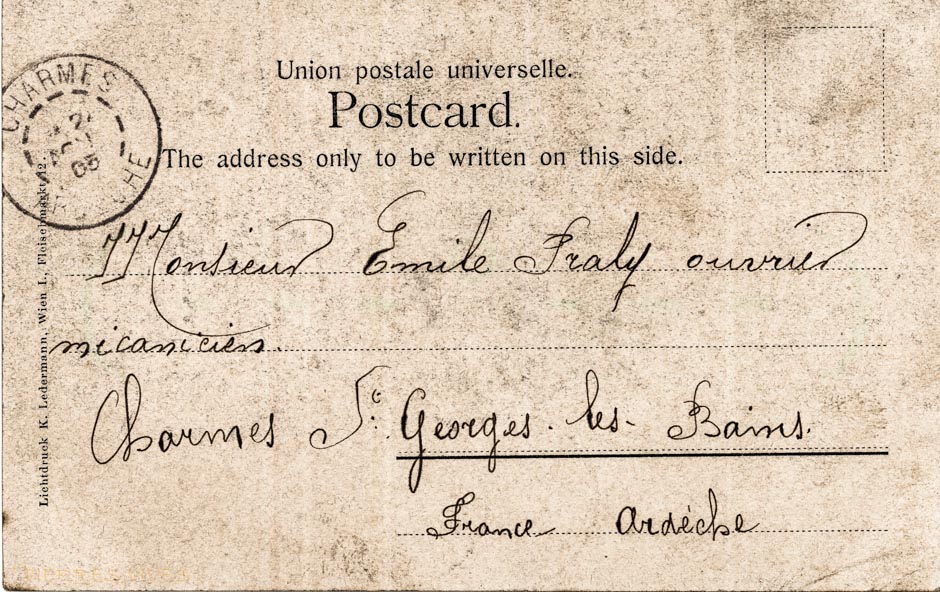 Union postale universelle.
Postcard.
The address only to be written on this side.
CHARMES
Monsieur Emile Fraly ouvrier
micanicien.
Charmes St. Georges. les- Bains.
France Ardèche
Lichtdruck K. Ledermann, Wien I., Fleischmarkt 12.